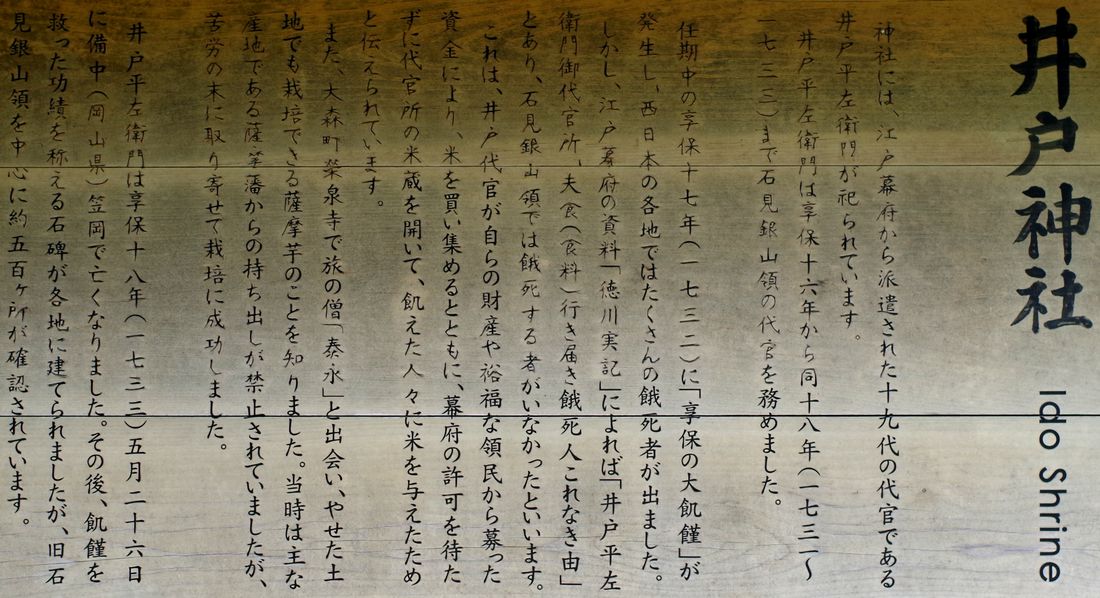 井戸神社
Ido Shrine
神社には、江戸幕府から派遣された十九代の代官である
井戸平左衛門が祀られています。
井戸平左衛門は享保十六年から同十八年(一七三一〜
一七三三)まで石見銀山領の代官を務めました。
任期中の享保十七年(一七三二)に「享保の大飢饉」が
発生し、西日本の各地ではたくさんの餓死者が出ました。
しかし、江戸幕府の資料「徳川実記」によれば「井戸平左
衛門御代官所、夫食(食料)行き届き餓死人これなき由」
とあり、石見銀山領では餓死する者がいなかったといいます。
これは、井戸代官が自らの財産や裕福な領民から募った
資金により、米を買い集めるとともに、幕府の許可を待た
ずに代官所の米蔵を開いて、飢えた人々に米を与えたため
と伝えられています。
また、大森町栄泉寺で旅の僧「泰永」と出会い、やせた土
地でも栽培できる薩摩芋のことを知りました。当時は主な
産地である薩摩藩からの持ち出しが禁止されていましたが、
苦労の末に取り寄せて栽培に成功しました。
井戸平左衛門は享保十八年(一七三三)五月二十六日
に備中(岡山県)笠岡で亡くなりました。その後、飢饉を
救った功績を称える石碑が各地に建てられましたが、旧石
見銀山領を中心に約五百ヶ所が確認されています。